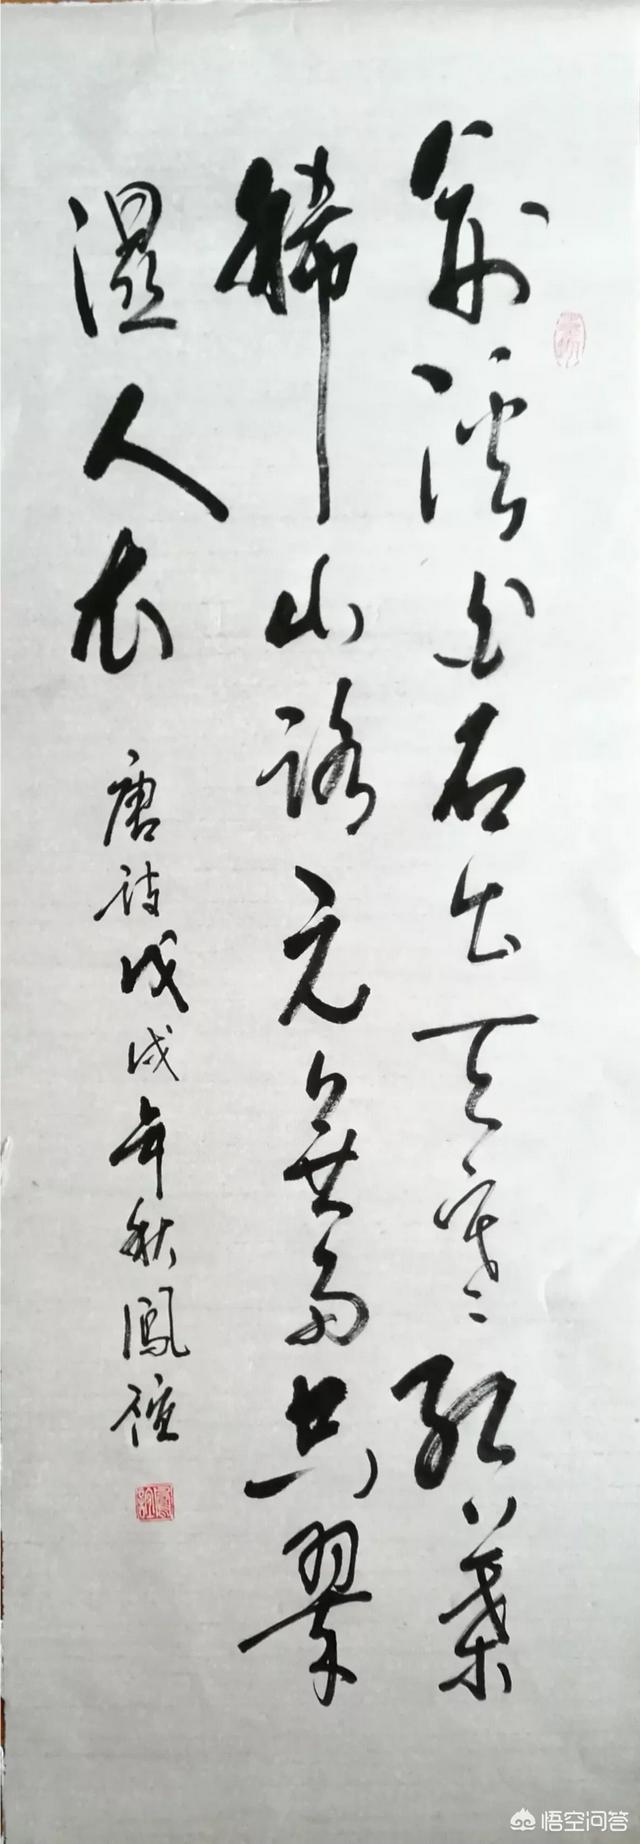 荊溪白石出天寒紅葉
稀山路元無雨空翠
濕人衣
唐詩戊戌年秋鳳
悟空问答